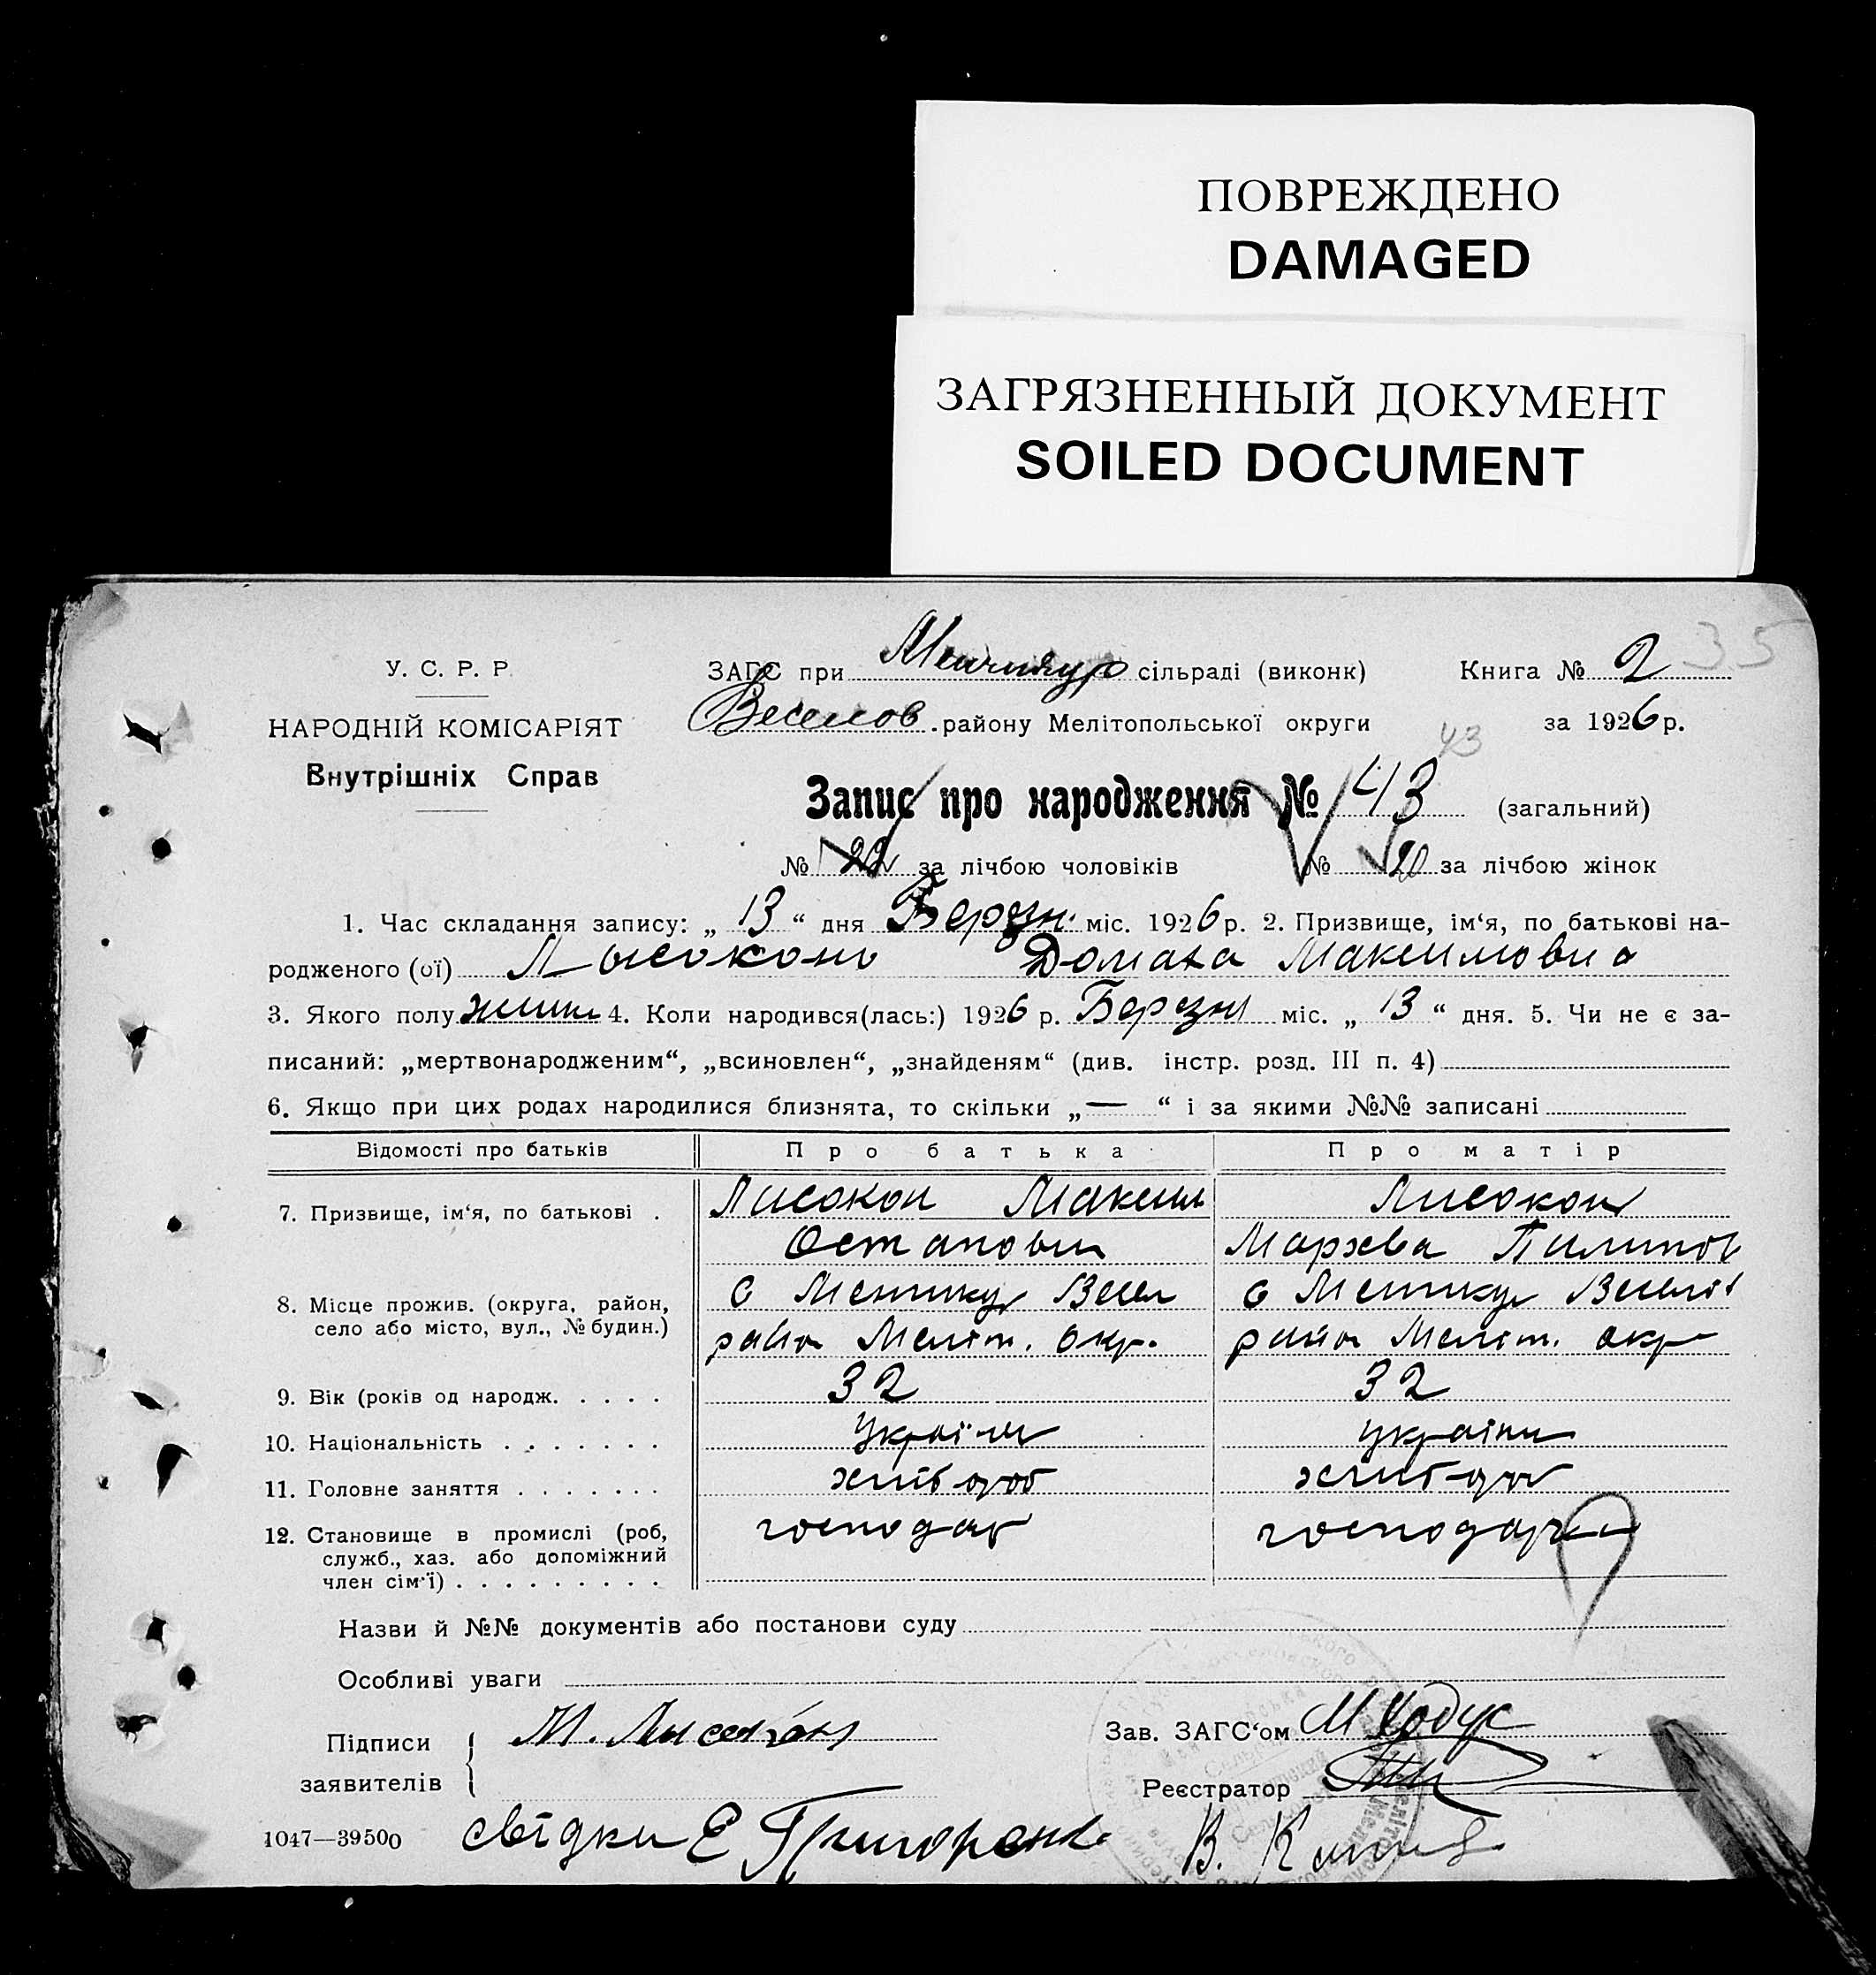 ПОВРЕЖДЕНО
DAMAGED
ЗАГРЯЗНЕННЫЙ ДОКУМЕНТ
SOILED DOCUMENT
35
У. С. Р. Р.
НАРОДНІЙ КОМІСАРІЯТ
Внутрішніх Справ
ЗАГС при Менчикур сільраді (виконк)
Книга № 2
Веселов. району Мелітопольської округи
за 1926 р.
43
Запис про народження № 43 (загальний)
№ 22 за лічбою чоловіків № 20 за лічбою жінок
1. Час складання запису: „ 13 “ дня Березн. міс. 1926 р. 2. Призвище, ім'я, по батькові на-
родженого (ої) Лысоконь Домаха Максимовна
3. Якого полу 4. Коли народився(лась:) 1926 р. Березня міс. „ 13 “ дня. 5. Чи не є за-
писаний: „мертвонародженим“, „всиновлен“, „знайденям“ (див. інстр. розд. III п. 4)
6. Якщо при цих родах народилися близнята, то скільки „ — “ і за якими №№ записані
Відомості про батьків Про батька Про матір
7. Призвище, ім'я, по батькові . Лисокон Максим Лисокон
Остапович Пилипов
8. Місце прожив. (округа, район, с Менчикур Весел с Менчикур Веселів
село або місто, вул., № будин.) район Меліт. окр. район Меліт. окр
9. Вік (років од народж. . . . . 32 32
10. Національність . . . . . . . Україн україн
11. Головне заняття . . . . . . . хлібороб хлібороб
12. Становище в промислі (роб, господар господар
служб., хаз. або допоміжний
член сім'ї) . . . . . . . . .
Назви й №№ документів або постанови суду
Особливі уваги
Підписи М. Лысоконь
Зав. ЗАГС'ом
заявителів
Реєстратор
1047—39500 свідки Е Григоренко В.